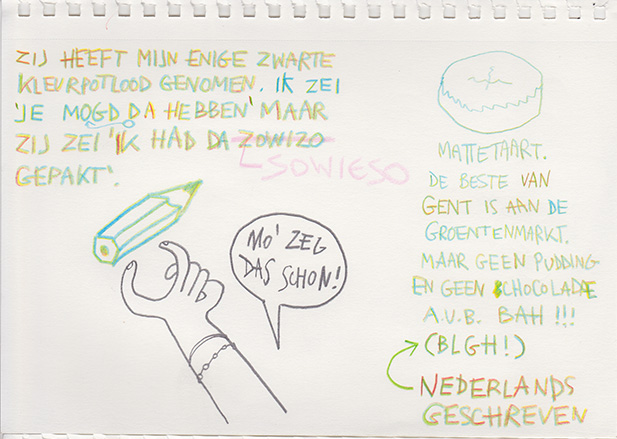 ZIJ HEEFT MIJN ENIGE ZWARTE
KLEURPOTLOOD GENOMEN. IK ZEI
'JE MOGD DA HEBBEN' MAAR
ZIJ ZEI 'IK HAD DA ZOWIZO
SOWIESO
GEPAKT'.
MO' ZEG
DAS SCHON!
MATTETAART.
DE BESTE VAN
GENT IS AAN DE
GROENTENMARKT.
MAAR GEEN PUDDING
EN GEEN CHOCOLADE
A.U.B. BAH!!!
(BLGH!)
NEDERLANDS
GESCHREVEN